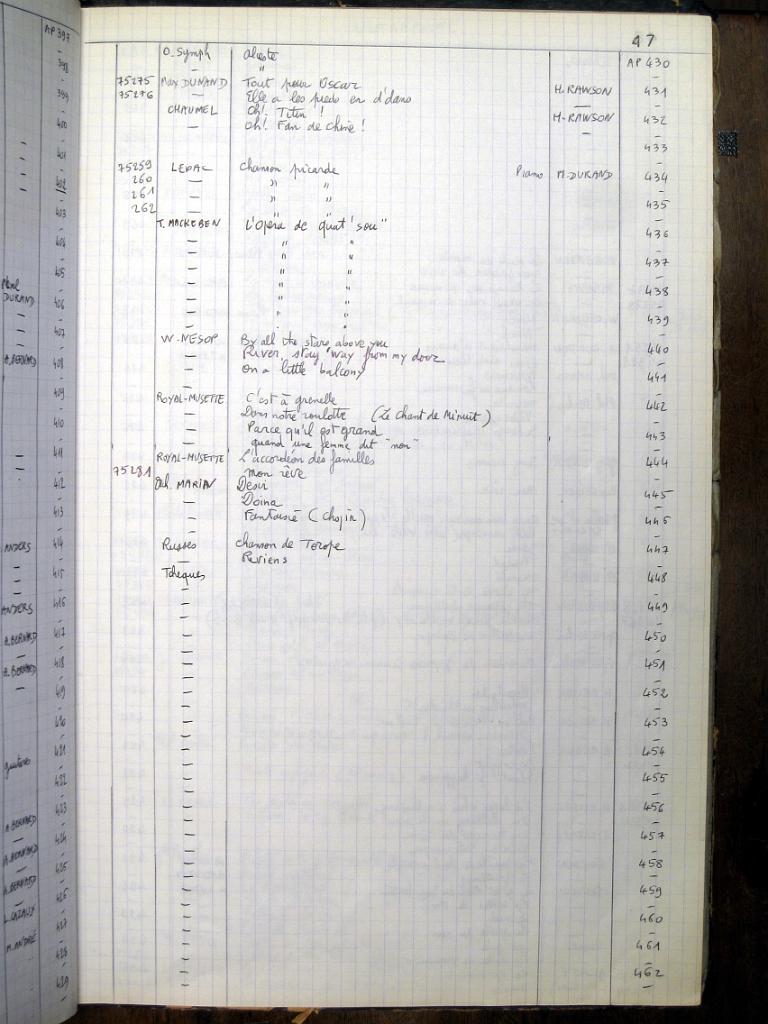 AP 397
398
399
400
401
402
403
404
405
DURAND
406
407
A. BERNARD
408
409
410
411
412
413
ANDERS
414
415
ANDERS
416
A. BERNARD
417
A. BERNARD
418
419
420
421
422
423
A. BERNARD
424
A. BERNARD
425
A. BERNARD
426
L. CAZAUX
427
M. ANDRÉ
428
429
47
O. Symph Alceste AP 430
— " —
75275 Max DURAND Tout pour Oscar H. RAWSON 431
75276 — Elle a les pieds en d'dans — —
CHAUMEL Oh! Titin! H-RAWSON 432
— Oh! Fan de chine! — —
433
—
75259 LEDAC Chanson picarde Piano M. DURAND 434
260 — " " —
261 — " " 435
262 — " " —
T. MACKEBEN L'opéra de quat' sou" 436
— " " —
— " " 437
— " " —
— " " 438
— " " —
— " " 439
— " " —
W. NESOP By all the stars above you 440
— River, stay 'way from my door —
— On a little balcony 441
—
ROYAL-MUSETTE C'est à grenelle 442
— Dans notre roulotte (Le Chant de Minuit) —
— Parce qu'il est grand 443
— quand une femme dit "non" —
ROYAL-MUSETTE L'accordéon des familles 444
75281 — mon rêve —
MARIN Desir 445
— Doina —
— Fantaisie (Chopin) 446
—
Russes chanson de 447
— Reviens —
Tchèques 448
— —
— 449
— —
— 450
— —
— 451
— —
— 452
— —
— 453
— —
— 454
— —
— 455
— —
— 456
— —
— 457
— —
— 458
— —
— 459
— —
— 460
— —
— 461
— —
— 462
— —